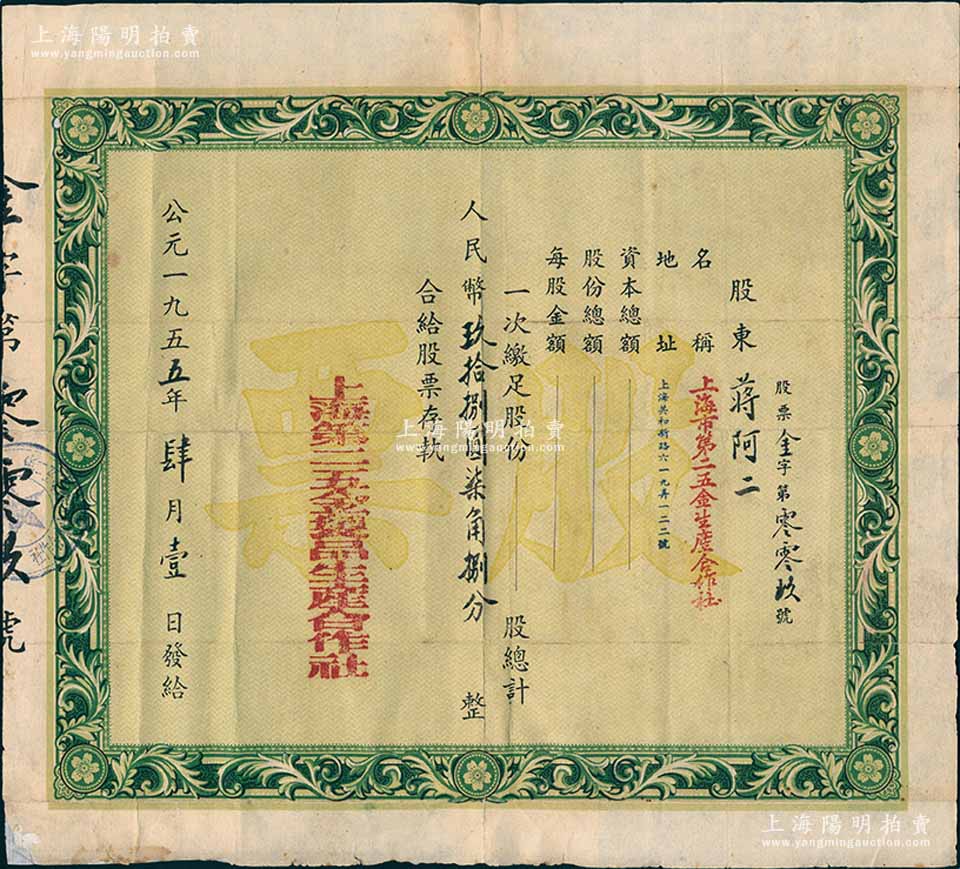 上海陽明拍賣
www.yangmingauction.com
股票
股票金字第零零玖號
股東 蔣阿二
名稱 上海市第二五金生產合作社
地址 上海共和新路六一九弄一二二號
資本總額
股份總額
每股金額
一次繳足股份 股總計
人民幣玖拾捌圓柒角捌分 整
合給股票存執
上海第二五金製品生產合作社
公元一九五五年肆月壹日發給
金字第零零玖號
上海陽明拍賣
www.yangmingauction.com
上海陽明拍賣
www.yangmingauction.com